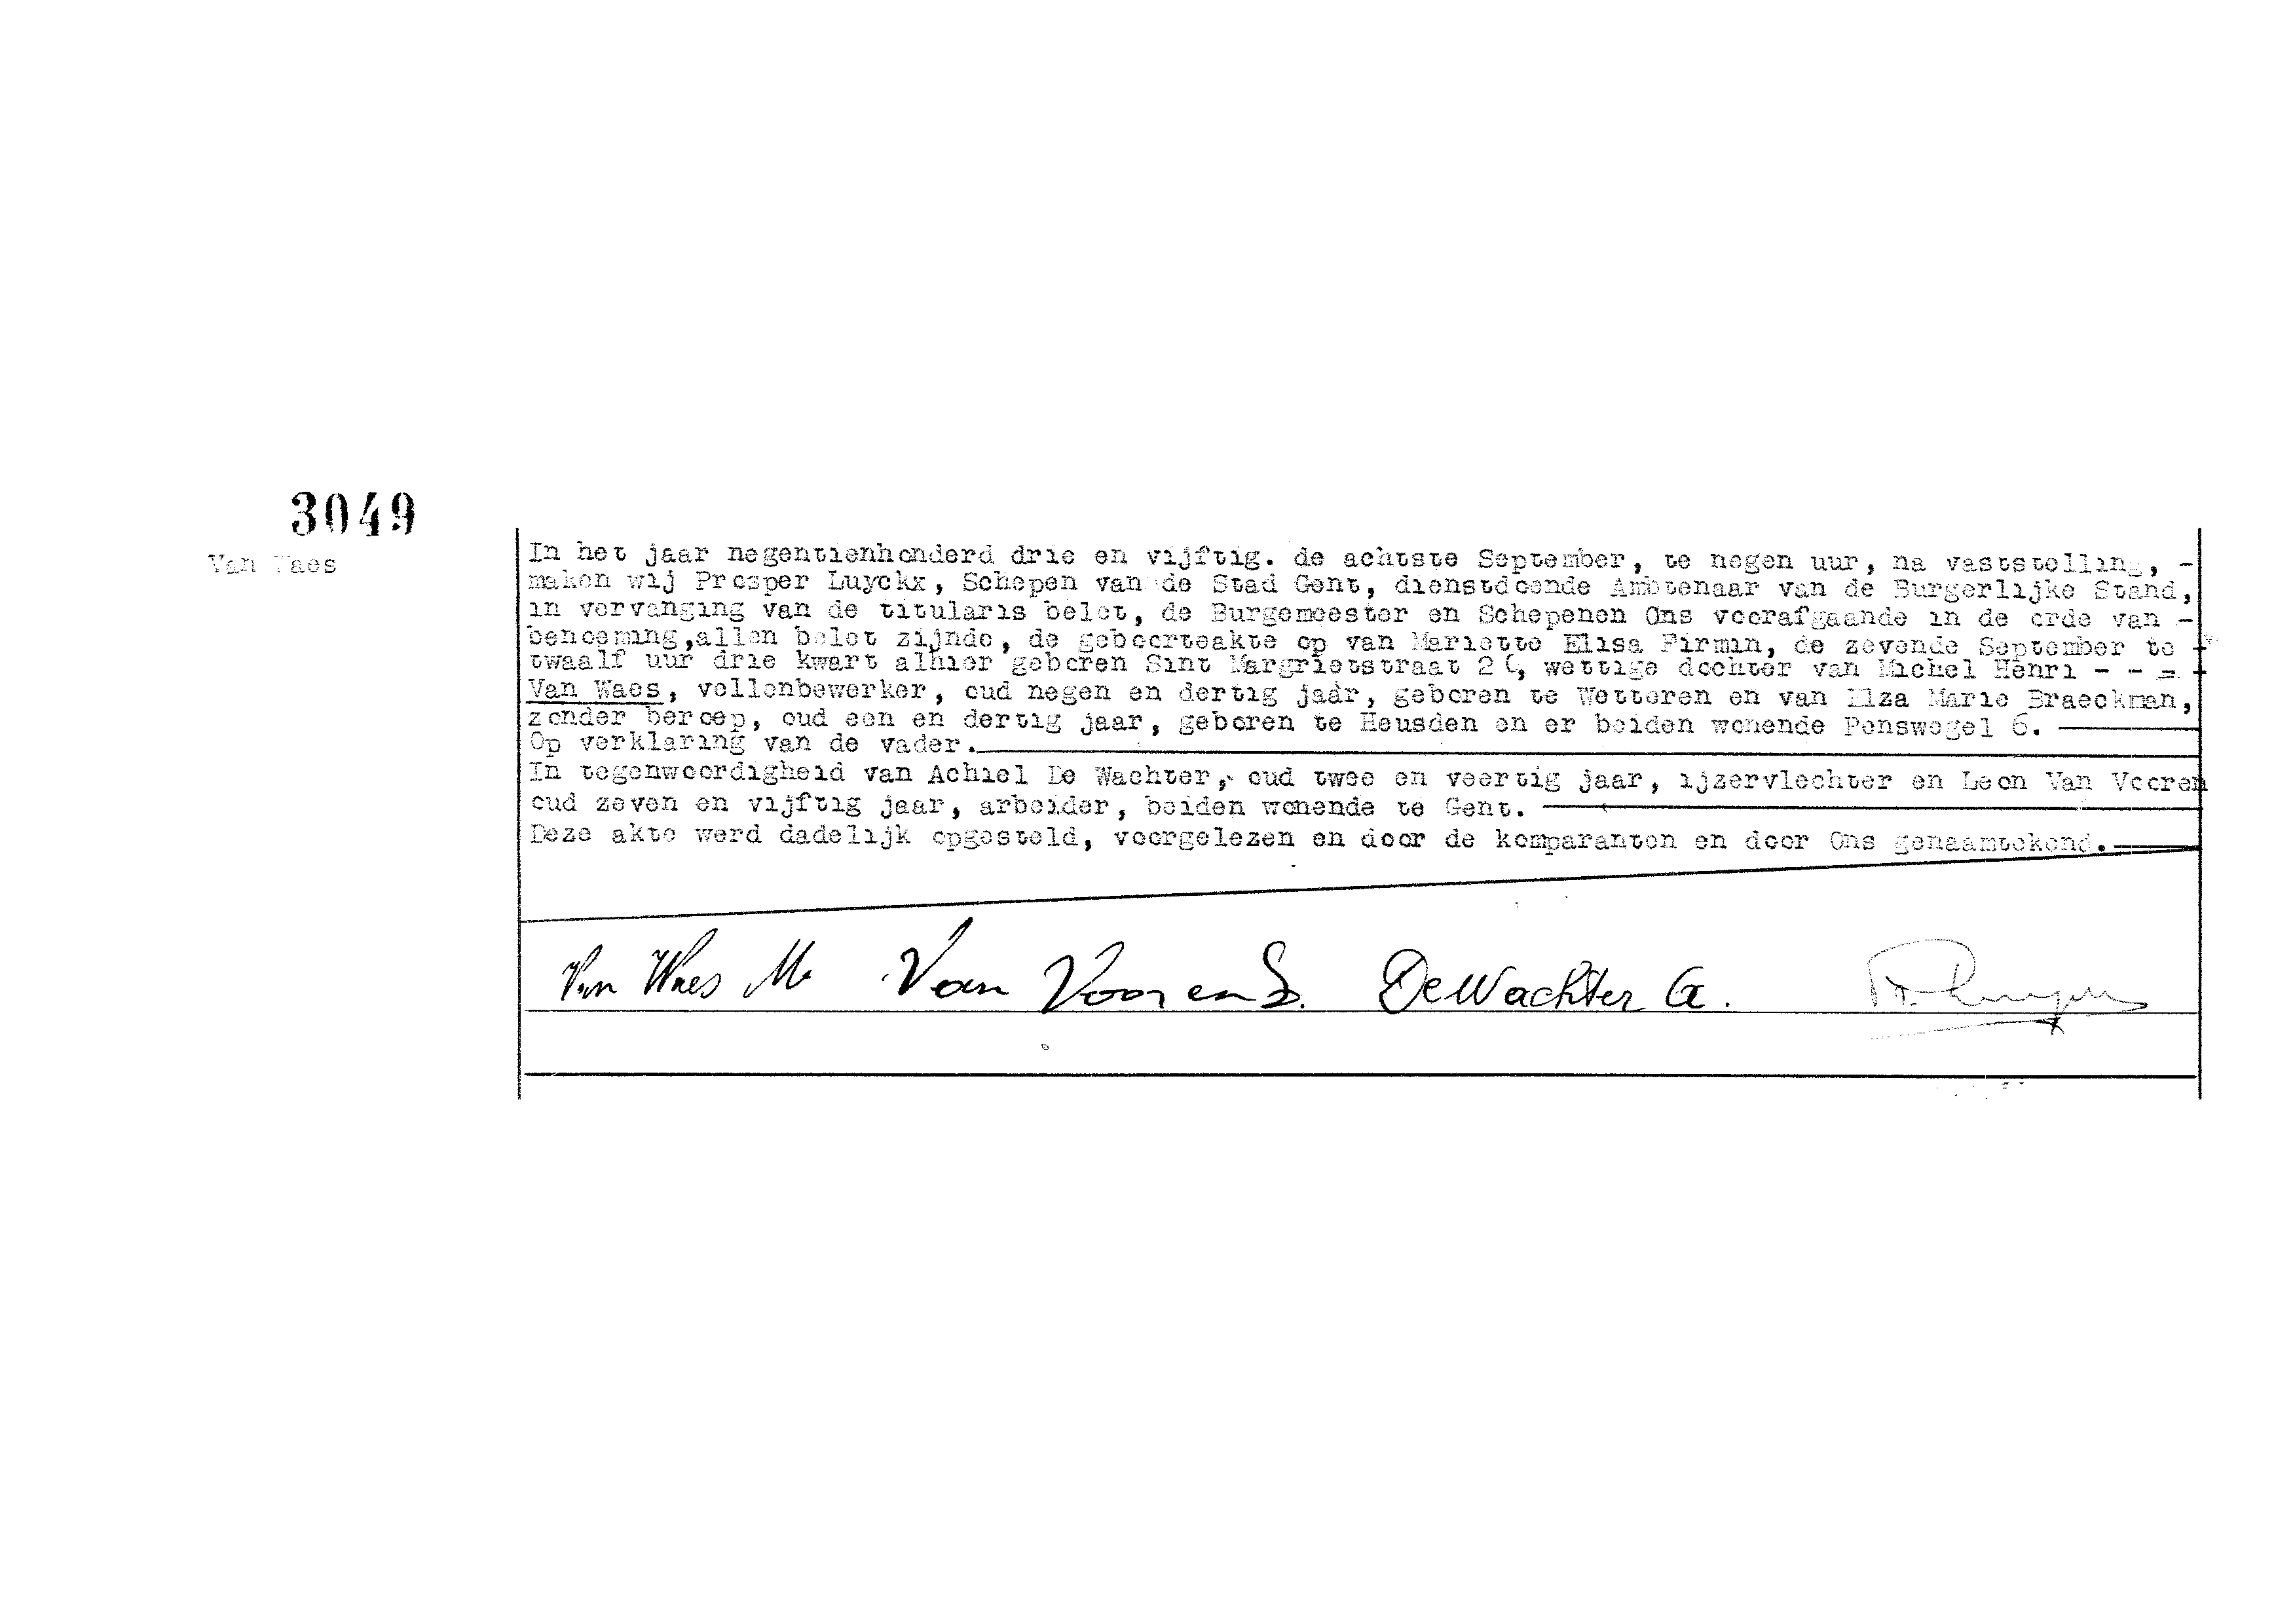 3049
Van Waes
In het jaar negentienhonderd drie en vijftig. de achtste September, te negen uur, na vaststelling, -
maken wij Prosper Luyckx, Schepen van de Stad Gent, dienstdoende Ambtenaar van de Burgerlijke Stand,
in vervanging van de titularis belet, de Burgemeester en Schepenen Ons voorafgaande in de orde van -
benoeming,allen belet zijnde, de geboorteakte op van Mariette Elisa Firmin, de zevende September te -
twaalf uur drie kwart alhier geboren Sint Margrietstraat wettige dochter van Michel Henri - - = -
Van Waes, vollenbewerker, oud negen en dertig jaar, geboren te Wetteren en van Elza Marie Braeckman,
zonder beroep, oud een en dertig jaar, geboren te Heusden en er beiden wonende Ponswegel 6.
Op verklaring van de vader.
In tegenwoordigheid van Achiel De Wachter, oud twee en veertig jaar, ijzervlechter en Leon Van Vooren
oud zeven en vijftig jaar, arbeider, beiden wonende te Gent.
Deze akte werd dadelijk opgesteld, voorgelezen en door de komparanten en door Ons genaamtekend.
Van Waes M Van Vooren L. De Wachter A.